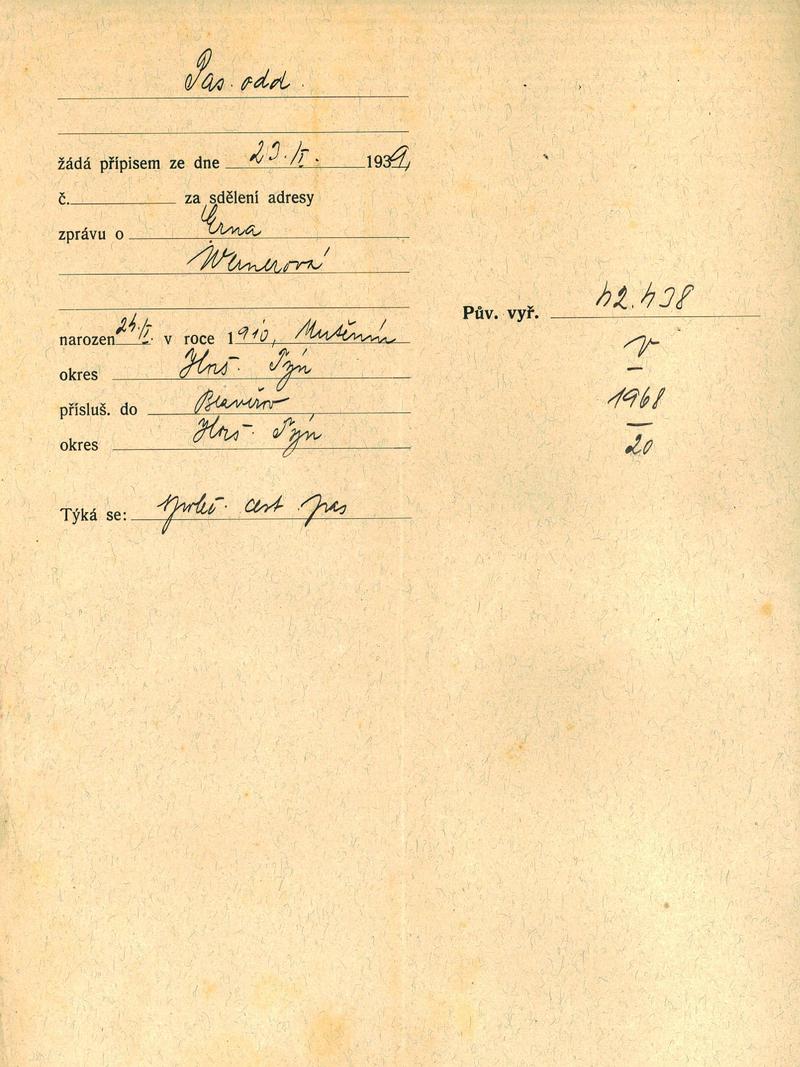 Pas. odd.
žádá přípisem ze dne 23. II. 1939,
č. za sdělení adresy
zprávu o Erna
Wernerová
narozen 24. II. v roce 1910, Mutěnín
okres Horš. Týn
přísluš. do
okres Horš. Týn
Týká se: cest. pas
Pův. vyř. 42.438
V
1968
20